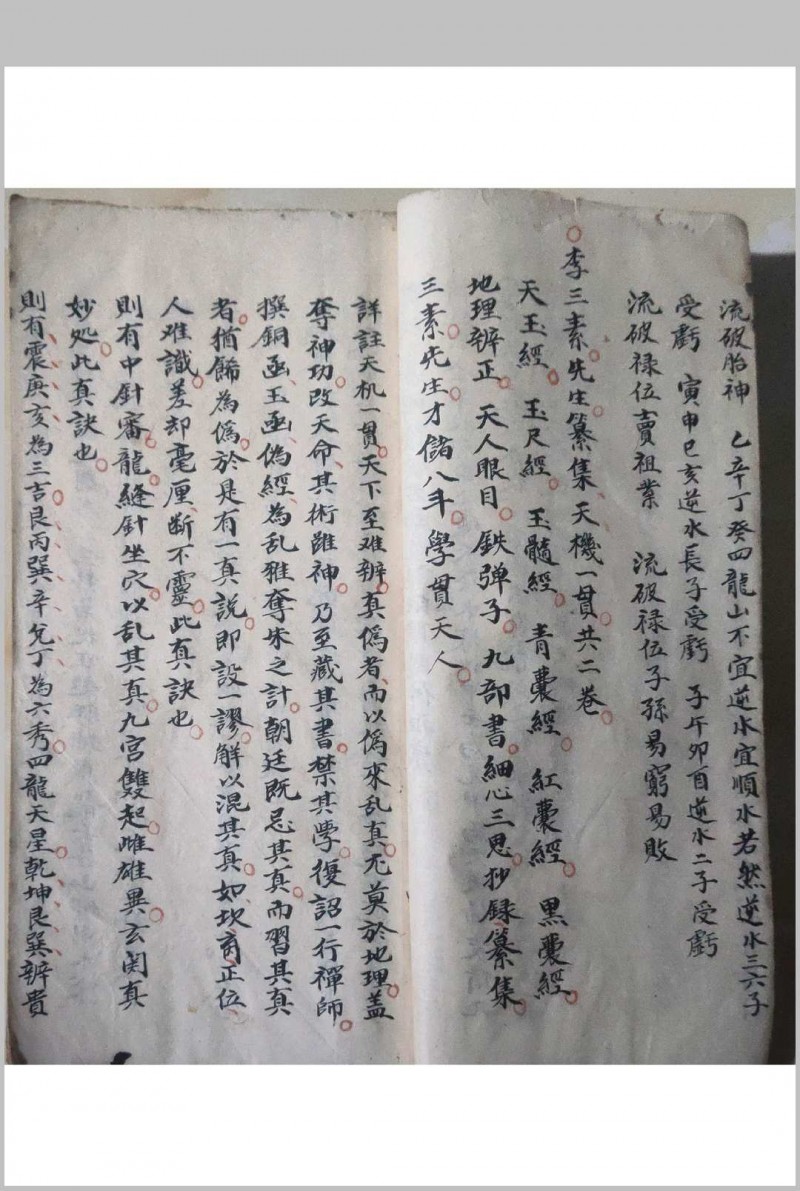 流破胎神　乙辛丁癸四龍山不宜逆水宜順水若然逆水三六子
受虧　寅申巳亥逆水長子受虧　子午卯酉逆水二子受虧
流破禄位賣祖業　流破禄位子孫易窮易敗
李三素先生纂集天機一貫共二卷
天玉經　玉尺經　玉髓經　青囊經　紅囊經　黑囊經
地理辨正　天人眼目　鉄弹子　九部書細心三思抄録纂集
三素先生才儲八斗學貫天人
詳註天机一貫天下至难辨真偽者而以偽來乱真尤莫於地理盖
奪神功改天命其術雖神乃至藏其書禁其學復詔一行禪師
撰銅函玉函偽經為乱雅奪朱之計朝廷既忌其真而習其真
者猶餙為偽於是有一真説即設一謬解以混其真如坎离正位
人难識差却毫厘断不靈此真訣也
則有中針審龍縫針坐穴以乱其真九宫雙起雌雄異玄関真
妙処此真訣也
則有震庚亥為三吉艮丙巽辛兌丁為六秀四龍天星乾坤艮巽辨貴